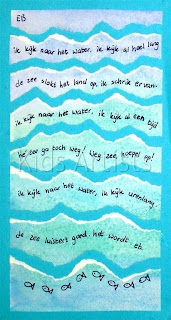 EB
ik kijk naar het water, ik kijk al heel lang
de zee slokt het land op, ik schrik ervan.
ik kijk naar het water, ik kijk al een tijd
hé zee ga toch weg! Weg zee, hoepel op!
ik kijk naar het water, ik kijk urenlang.
de zee luistert goed. het wordt eb.
Kids Artists